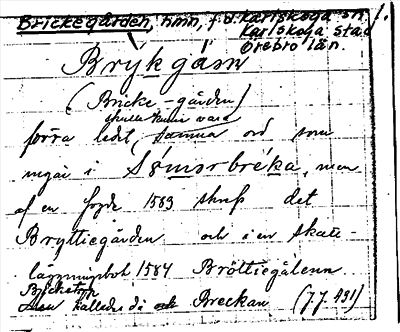 Brickegården, hmn, f.d. Karlskoga sn /.
Karlskoga stad
Örebro län.
Brýkgáșn
(Bricke-gården)
skulle kunna vara
förra ledet, samma ord som
ingår i Sömsrbréka, men
af en fogde 1583 skrefs det
Bryttiegården och i en skatte-
läggningsbok 1584 Bröttiegålenn
kallades då Breckan (J.J. 491)